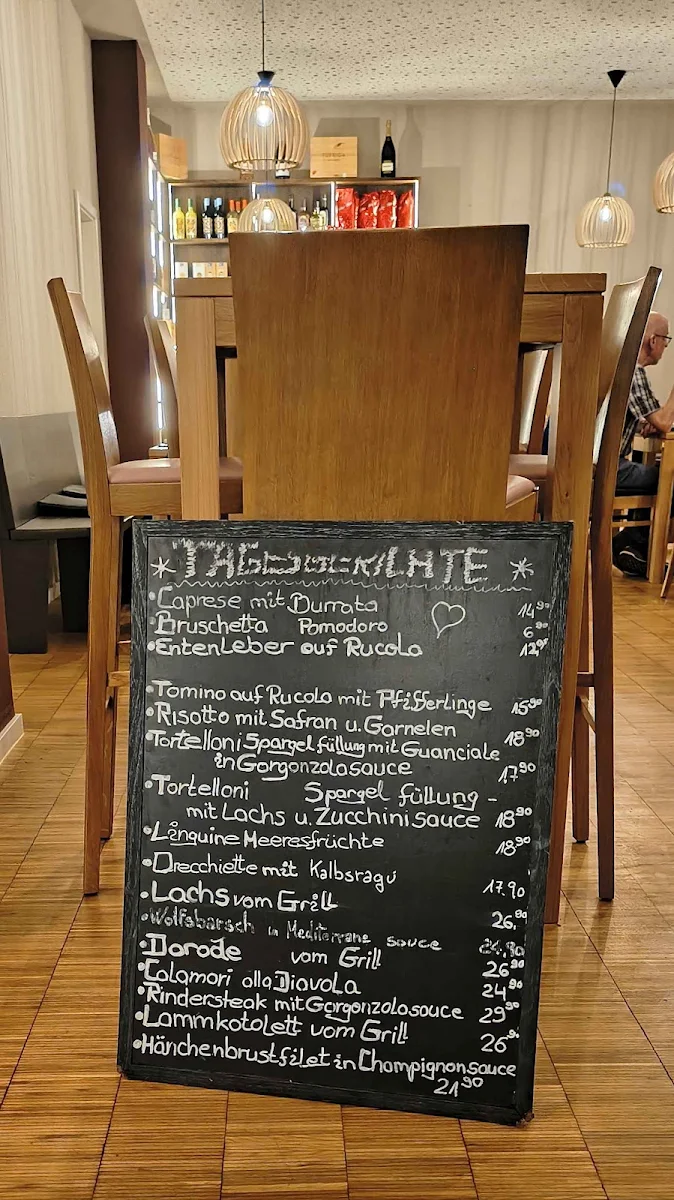 TAGESGERICHTE
•Caprese mit Burrata 14,90
•Bruschetta Pomodoro 6,90
•EntenLeber auf Rucola 12,90
•Tomino auf Rucola mit Pfifferlinge 15,90
•Risotto mit Safran u. Garnelen 18,90
•Tortelloni Spargel füllung mit Guanciale
in Gorgonzolasauce 17,90
•Tortelloni Spargel füllung -
mit Lachs u. Zucchini sauce 18,90
•Linguine Meeresfrüchte 18,90
•Orecchiette mit Kalbsragú 17.90
•Lachs vom Grill 26,90
•Wolfsbarsch in Mediterrane sauce 24,90
•Dorade vom Grill 26,90
•Calamari alla Diavola 24,90
•Rindersteak mit Gorgonzolasauce 29,90
•Lammkotolett vom Grill 26,90
•Hänchenbrustfilet in Champignonsauce
21,90